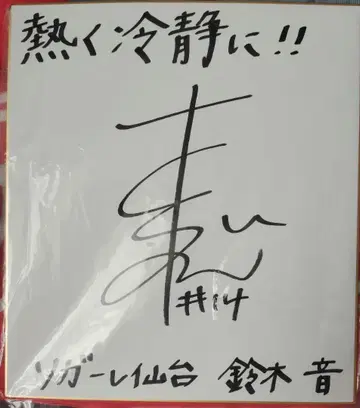 熱く冷静に!!
#14
リガーレ仙台 鈴木 音